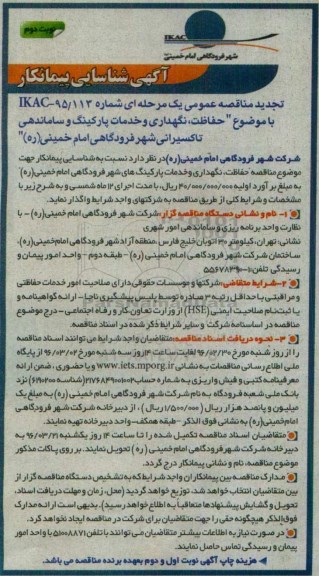 نوبت دوم
IKAC
شهر فرودگاهی امام خمینی
آگهی شناسایی پیمانکار
تجدید مناقصه عمومی یک مرحله ای شماره IKAC-۹۵/۱۱۳
با موضوع "حفاظت، نگهداری و خدمات پارکینگ و ساماندهی
تاکسیرانی شهر فرودگاهی امام خمینی(ره)"
شرکت شهر فرودگاهی امام خمینی(ره) در نظر دارد نسبت به شناسایی پیمانکار جهت
موضوع مناقصه حفاظت، نگهداری و خدمات پارکینگ های شهر فرودگاهی امام خمینی(ره)
به مبلغ برآورد اولیه ۳۰/۰۰۰/۰۰۰/۰۰۰ ریال، با مدت اجرای ۱۲ ماه شمسی و به شرح زیر با
مشخصات و شرایط کلی از طریق مناقصه به شرکتهای واجد شرایط واگذار نماید.
۱- نام و نشانی دستگاه مناقصه گزار: شرکت شهر فرودگاهی امام خمینی(ره) - با
نظارت واحد برنامه ریزی و ساماندهی امور شهری
نشانی: تهران، کیلومتر ۳۰ اتوبان خلیج فارس، منطقه آزاد شهر فرودگاهی امام خمینی(ره)،
ساختمان شرکت شهر فرودگاهی امام خمینی (ره) - طبقه دوم - واحد امور پیمان و
رسیدگی تلفن:
۲- شرایط متقاضی: شرکتها و موسسات حقوقی دارای صلاحیت امور خدمات حفاظتی
و مراقبتی با حداقل رتبه ۳ صادره توسط پلیس پیشگیری ناجا - ارائه گواهینامه و
یا ثبت نام صلاحیت ایمنی (HSE) از وزارت تعاون کار و رفاه اجتماعی - درج موضوع
مناقصه در اساسنامه شرکت و سایر شرایط ذکر شده در اسناد مناقصه.
۳- نحوه دریافت اسناد مناقصه: متقاضیان واجد شرایط می توانند اسناد مناقصه
را از روز شنبه مورخ ۹۶/۰۲/۳۰ لغایت ساعت ۱۴ روز سه شنبه مورخ ۹۶/۰۳/۰۲ از پایگاه
ملی اطلاع رسانی مناقصات به نشانی www.iets.mporg.ir و یا حضوری، ضمن ارائه
معرفینامه کتبی و فیش واریزی به شماره حساب نزد
بانک ملی شعبه فرودگاه به نام شرکت شهر فرودگاهی امام خمینی (ره) به مبلغ یک
میلیون و پانصد هزار ریال (۱/۵۰۰/۰۰۰ ریال)، از دبیرخانه شرکت شهر فرودگاهی
امام خمینی(ره) به نشانی فوق الذکر - طبقه همکف - واحد دبیرخانه تهیه نمایند.
متقاضیان اسناد مناقصه تکمیل شده را تا ساعت ۱۴ روز یکشنبه ۹۶/۰۳/۲۱ به
دبیرخانه شرکت شهر فرودگاهی امام خمینی (ره) تحویل نمایند. بر روی پاکات مذکور
موضوع مناقصه، نام و نشانی پیمانکار درج گردد.
مدارک مناقصه بین پیمانکاران واجد شرایط که به تشخیص دستگاه مناقصه گزار از
بین متقاضیان انتخاب خواهد شد، توزیع خواهد گردید (محل، زمان و مهلت دریافت اسناد،
تحویل و گشایش پیشنهادها متعاقباً به اطلاع خواهد رسید). بدیهی است ارائه مدارک
فوق الذکر هیچگونه حقی را جهت متقاضیان برای شرکت در مناقصه ایجاد نخواهد کرد.
در صورت نیاز به اطلاعات بیشتر متقاضیان می توانند با تلفن با واحد امور
پیمان و رسیدگی تماس حاصل نمایند.
هزینه چاپ آگهی نوبت اول و دوم بعهده برنده مناقصه می باشد.